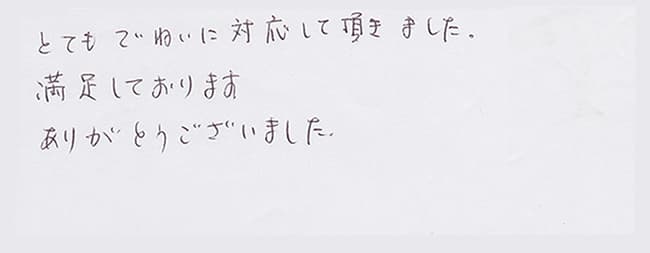 とてもでねいに対応して頂きました。
満足しております
ありがとうございました.